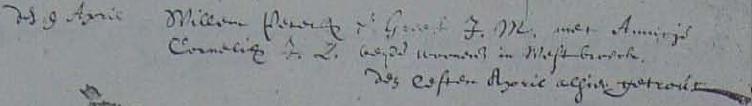 den 9 April Willem Peters d' Groot J. M. met Annitje
Cornelis J. D. beyde wonens in Westbroeck.
den lesten April alhier getrout